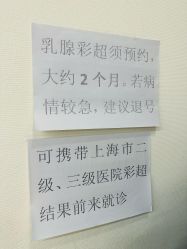 乳腺彩超须预约，
大约2个月。若病
情较急，建议退号
可携带上海市二
级、三级医院彩超
结果前来就诊